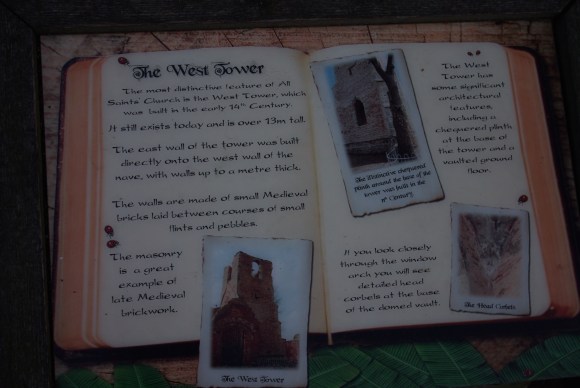 The West Tower
The most distinctive feature of All
Saints' Church is the West Tower, which
was built in the early 14th Century.
It still exists today and is over 13m tall.
The east wall of the tower was built
directly onto the west wall of the
nave, with walls up to a metre thick.
The walls are made of small Medieval
bricks laid between courses of small
flints and pebbles.
The masonry
is a great
example of
late Medieval
brickwork.
The West Tower
The Distinctive chequered
plinth around the base of the
tower was built in the
Century
The West
Tower has
some significant
architectural
features,
including a
chequered plinth
at the base of
the tower and a
vaulted ground
floor.
If you look closely
through the window
arch you will see
detailed head
corbels at the base
of the domed vault.
The Head Corbels